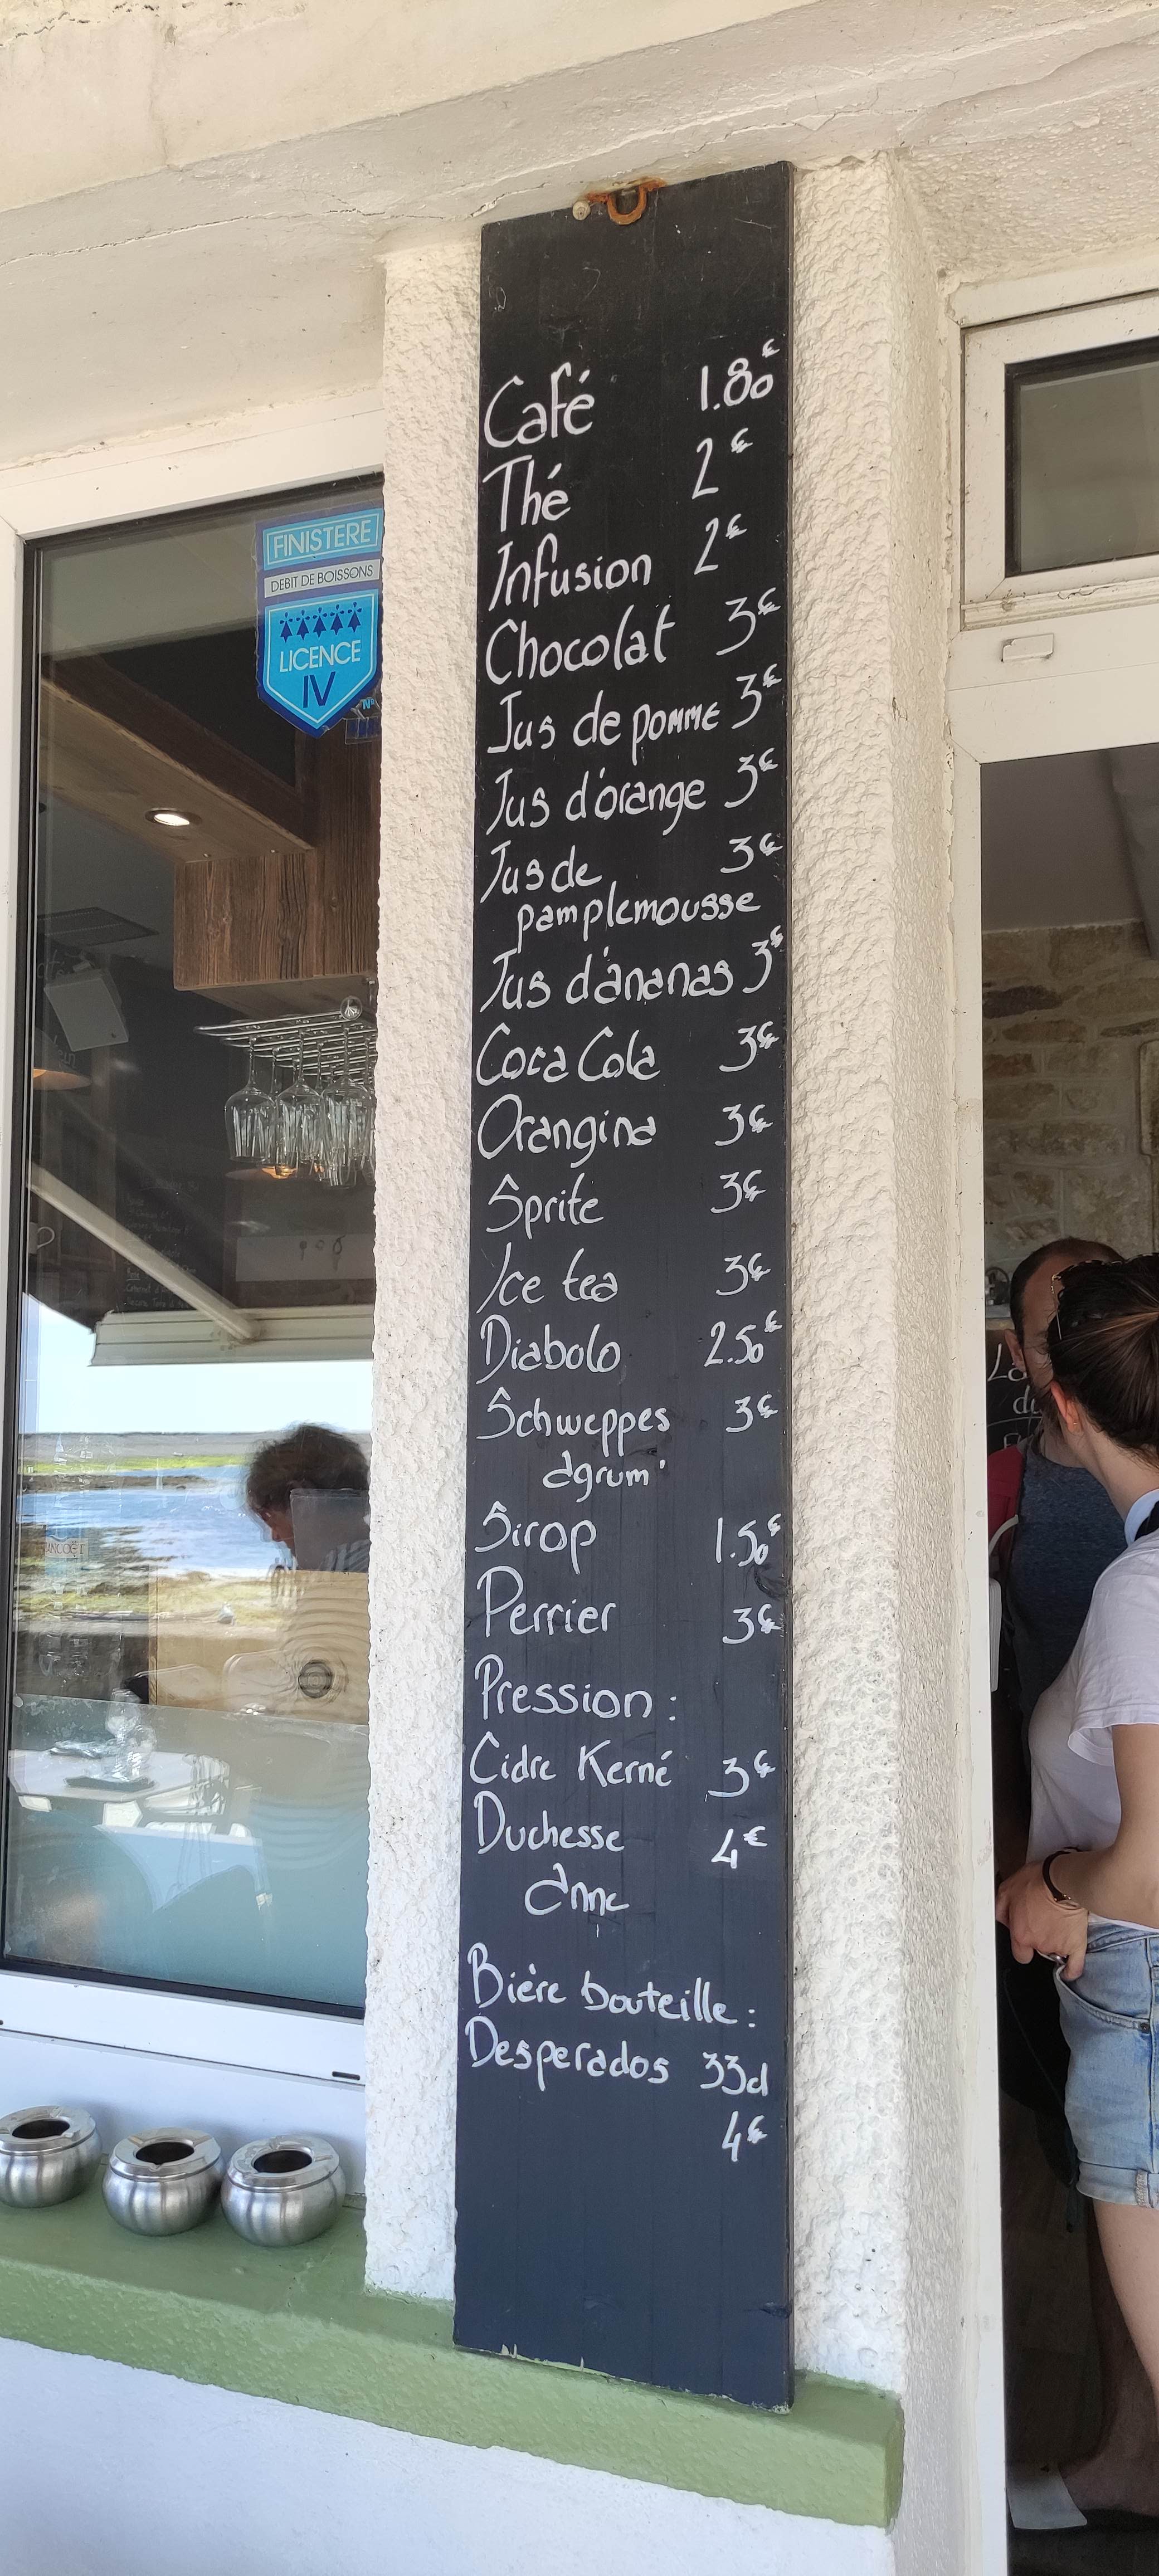 FINISTERE
DEBIT DE BOISSONS
LICENCE
IV
N°
Café 1.80€
Thé 2€
Infusion 2€
Chocolat 3€
Jus de pomme 3€
Jus d'orange 3€
Jus de 3€
pamplemousse
Jus d'ananas 3€
Coca Cola 3€
Orangina 3€
Sprite 3€
Ice tea 3€
Diabolo 2.50€
Schweppes 3€
agrum'
Sirop 1.50€
Perrier 3€
Pression :
Cidre Kerné 3€
Duchesse 4€
Anne
Bière bouteille :
Desperados 33cl
4€